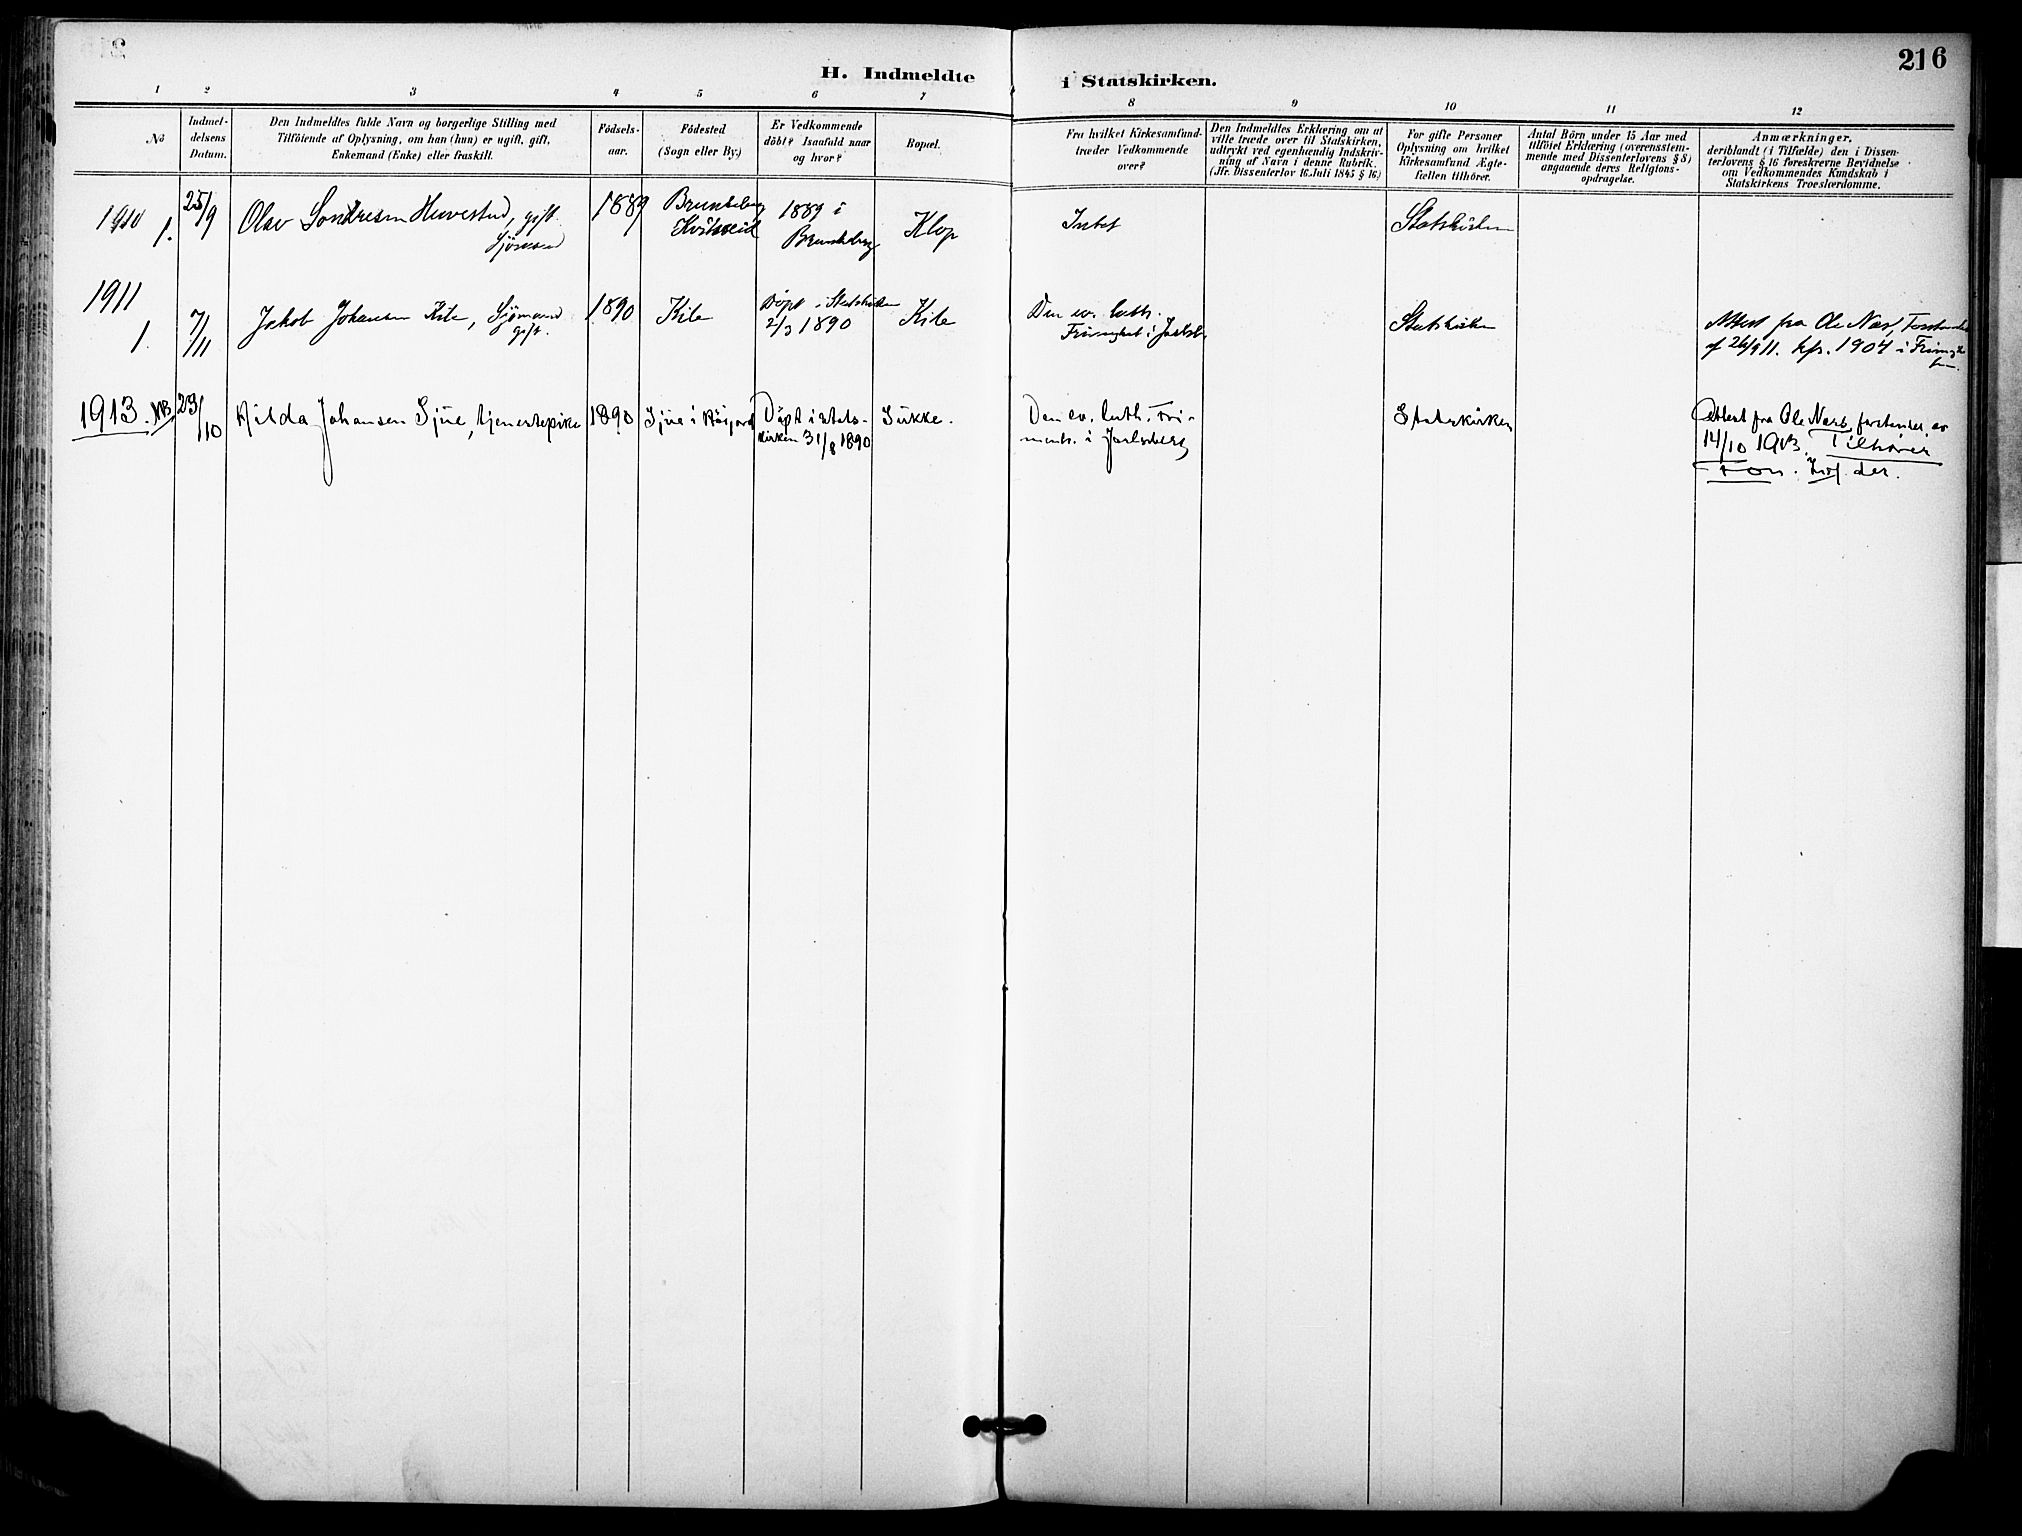 216
H. Indmeldte i Statskirken.
1 2 3 4 5 6 7 8 9 10 11 12
No
Indmel-
delsens
Datum.
Den Indmeldtes fulde Navn og borgerlige Stilling med
Tilföiende af Oplysning, om han (hun) er ugift, gift,
Enkemand (Enke) eller fraskilt.
Födsels-
aar.
Födested
(Sogn eller By.)
Er Vedkommende
döbt? Isaafald naar
og hvor?
Bopæl.
Fra hvilket Kirkesamfund
træder Vedkommende
over?
Den Indmeldtes Erklæring om at
ville træde over til Statskirken,
udtrykt ved egenhændig Indskriv-
ning af Navn i denne Rubrik.
(Jfr. Dissenterlov 16. Juli 1845 § 16.)
For gifte Personer
Oplysning om hvilket
Kirkesamfund Ægte-
fællen tilhörer.
Antal Börn under 15 Aar med
tilföiet Erklæring (overensstem-
mende med Dissenterlovens § 8)
angaaende deres Religions-
opdragelse.
Anmærkninger,
deriblandt (i Tilfælde) den i Dissen-
terlovens § 16 foreskrevne Bevidnelse
om Vedkommendes Kundskab i
Statskirkens Troeslærdomme.
1910
1.
25/9
Olav Sondresen Huvestad, gift.
Sjömand
1889
Brunkeberg
Kvitseid
1889 i
Brunkeberg
Klop
Intet
Statskirken
1911
1.
7/11
Jakob Johansen Kile, Sjömand
gift.
1890
Kile
Döpt i Statskirken
2/3 1890
Kile
Den ev. luth.
Frimenighet i Jarlsb.
Statskirken
Attest fra Ole Næs, Forstander
af 26/9 11. kfr. 1904 i
1913. NB
23/10
Hilda Johansen Sjue, tjenestepike
1890
Sjue i Håsjord
Döpt i stats-
kirken 31/8 1890
Sukke.
Den ev. luth. Fri-
menh. i Jarlsberg
Statskirken
Attest fra Ole Næss, forstander, av
14/10 1913. Tilhører
kon. der.